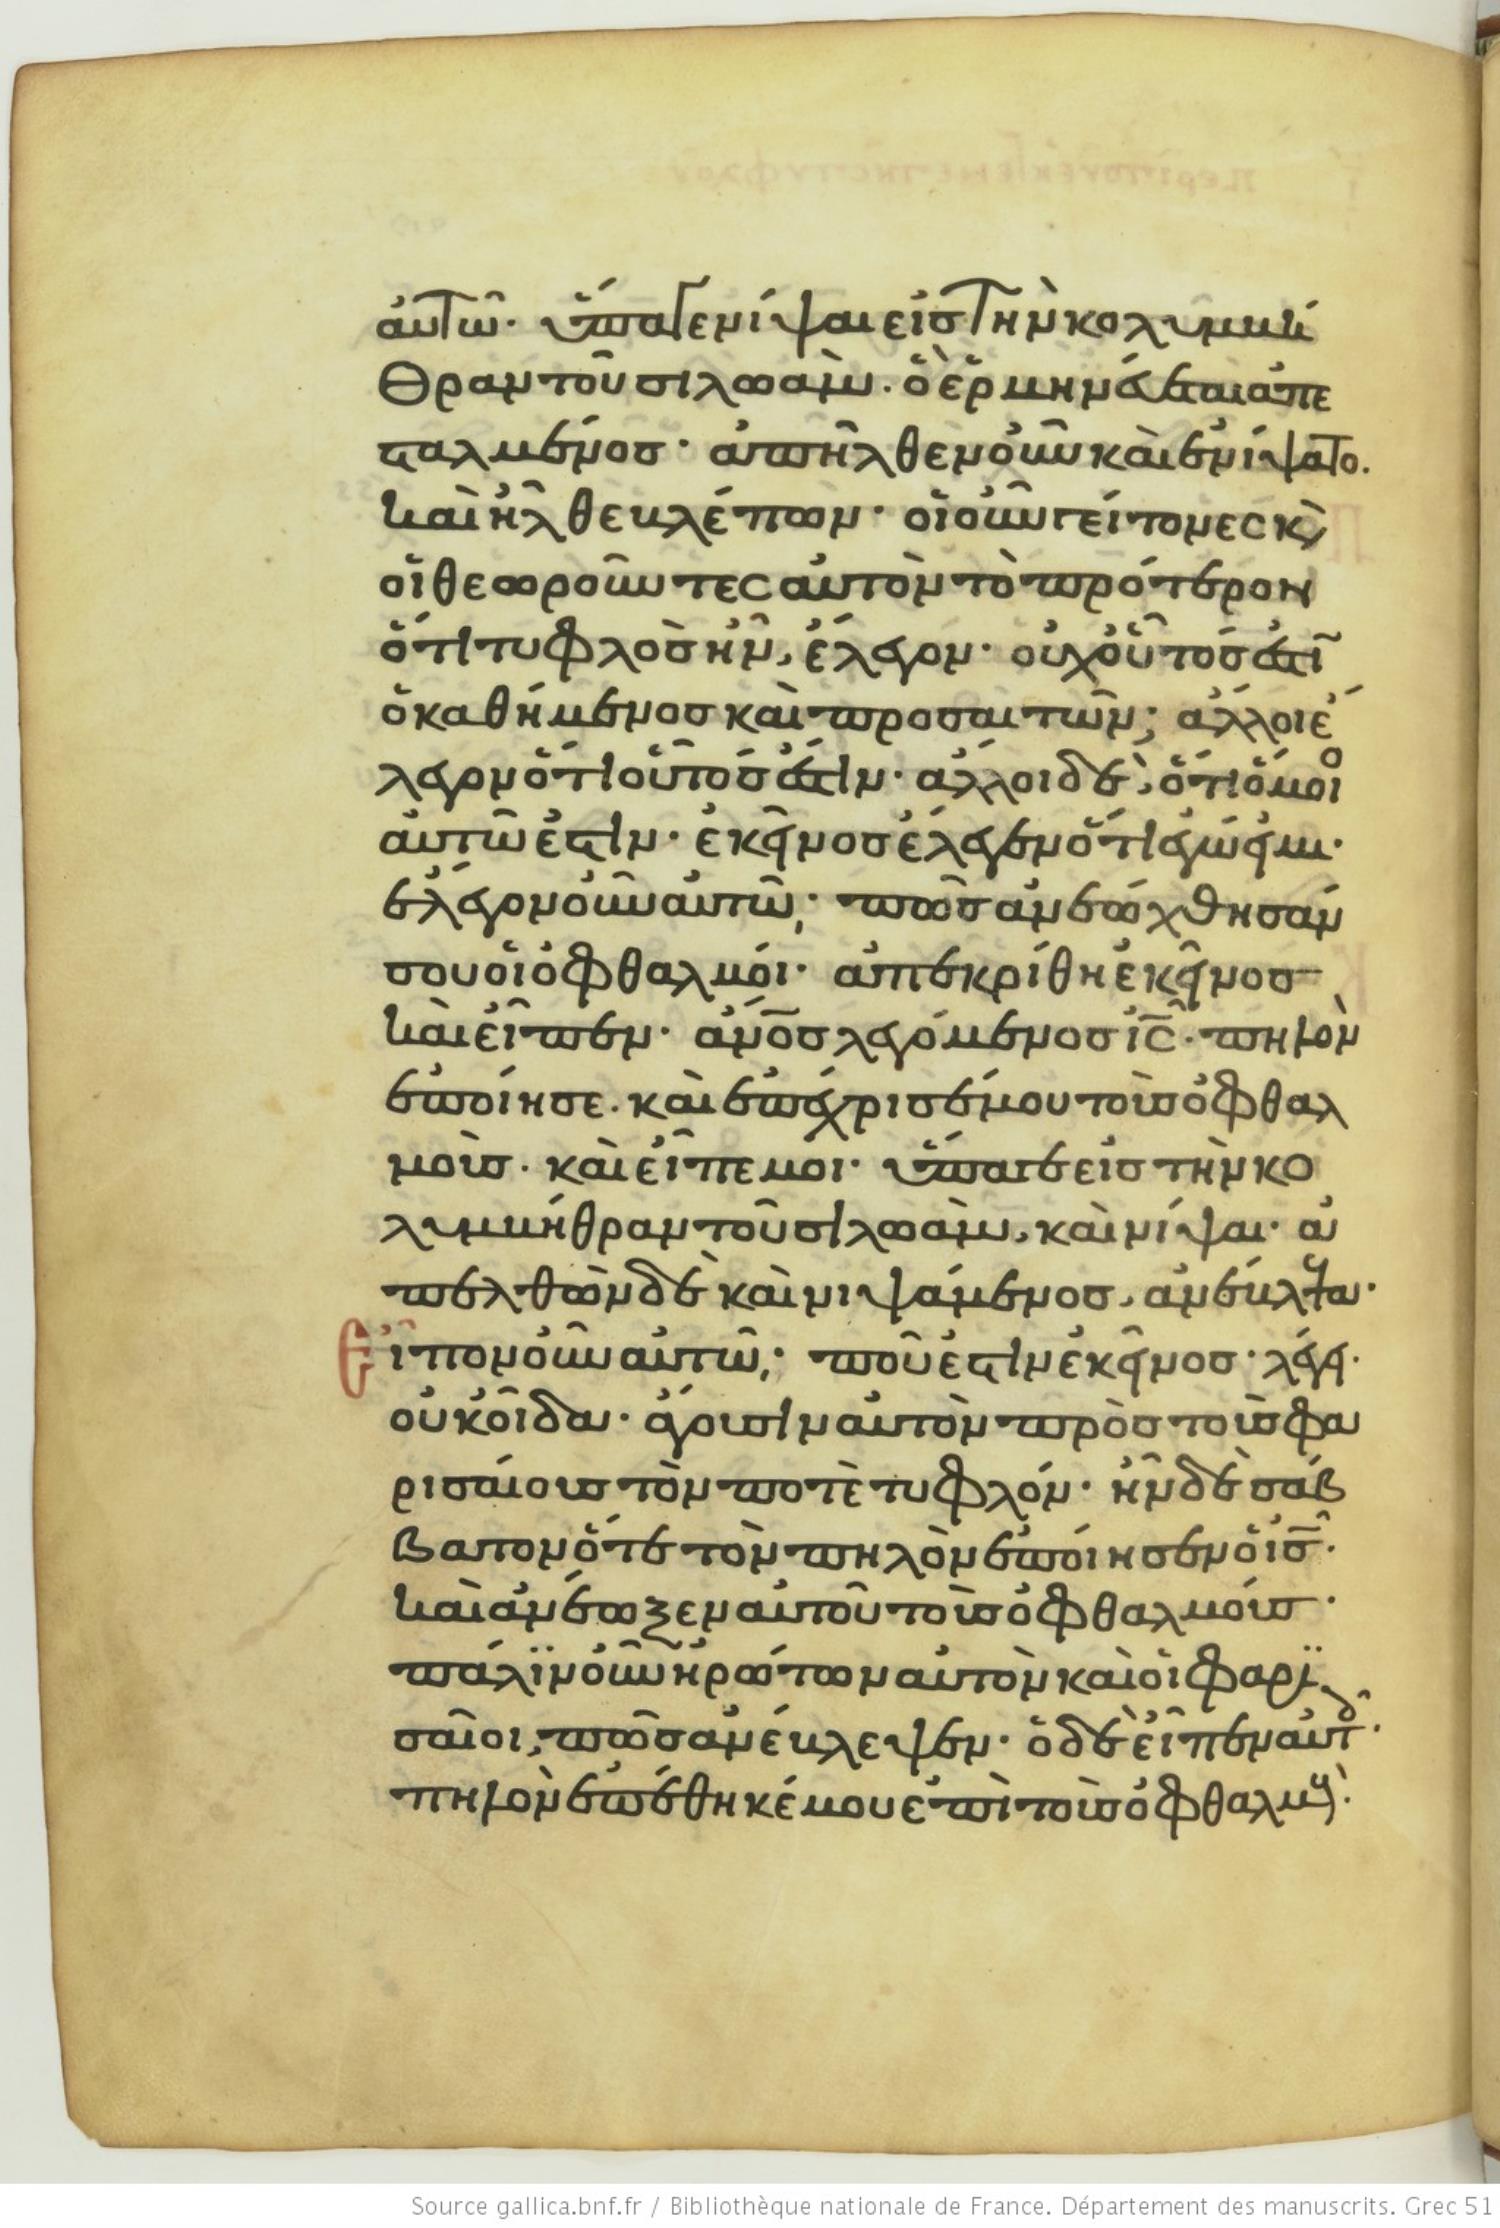 αὐτῶ· ὕπαγε νίψαι εἰς τὴν κολυμβή
θραν τοῦ σιλωάμ· ὃ ἑρμηνεύεται ἀπε
σταλμένος· ἀπῆλθεν οὖν καὶ ἐνίψατο.
καὶ ἦλθε βλέπων· οἱ οὖν γείτονες κ̀
οἱ θεωροῦντες αὐτὸν τὸ πρότερον
ὅτι τυφλὸς ἦν, ἔλεγον· οὐχ οὗτός ἐστῖ
ὁ καθήμενος καὶ προσαιτῶν; ἄλλοι ἔ
λεγον ὅτι οὗτός ἐστιν· ἄλλοι δὲ, ὅτι ὅμοιο
αὐτῶ ἐστιν· ἐκεῖνος ἔλεγεν ὅτι ἐγώ εἰμι·
ἔλεγον οὖν αὐτῶ· πῶς ἀνεώχθησάν
σου οἱ ὀφθαλμοί· ἀπεκρίθη ἐκεῖνος
καὶ εἶπεν· ἄνο̅ς λεγόμενος ι̅ς̅· πηλὸν
ἐποίησε· καὶ ἐπέχρισέ μου τοὺς ὀφθαλ
μοὺς· καὶ εἶπέ μοι· ὕπαγε εἰς τὴν κο
λυμβήθραν τοῦ σιλωὰμ, καὶ νίψαι· ἀ
πελθὼν δὲ καὶ νιψάμενος, ἀνέβλεψα·
Εἶπον οὖν αὐτῶ· ποῦ ἐστιν ἐκεῖνος· λέγει·
οὐκ οἶδα· ἄγουσιν αὐτὸν πρὸς τοὺς φα
ρισαίους τὸν ποτὲ τυφλόν· ἦν δὲ σάβ
βατον ὅτε τὸν πηλὸν ἐποίησεν ὁ ι̅ς̅·
καὶ ἀνέωξεν αὐτοῦ τοὺς ὀφθαλμούς·
πάλϊν οὖν ἠρώτων αὐτὸν καὶ οἱ φαρϊ
σαῖοι, πῶς ἀνέβλεψεν· ὁ δὲ εἶπεν αὐτοῖ·
πηλὸν ἐπέθηκέ μου ἐπὶ τοὺς ὀφθαλμούς·
Source gallica.bnf.fr / Bibliothèque nationale de France. Département des manuscrits. Grec 51